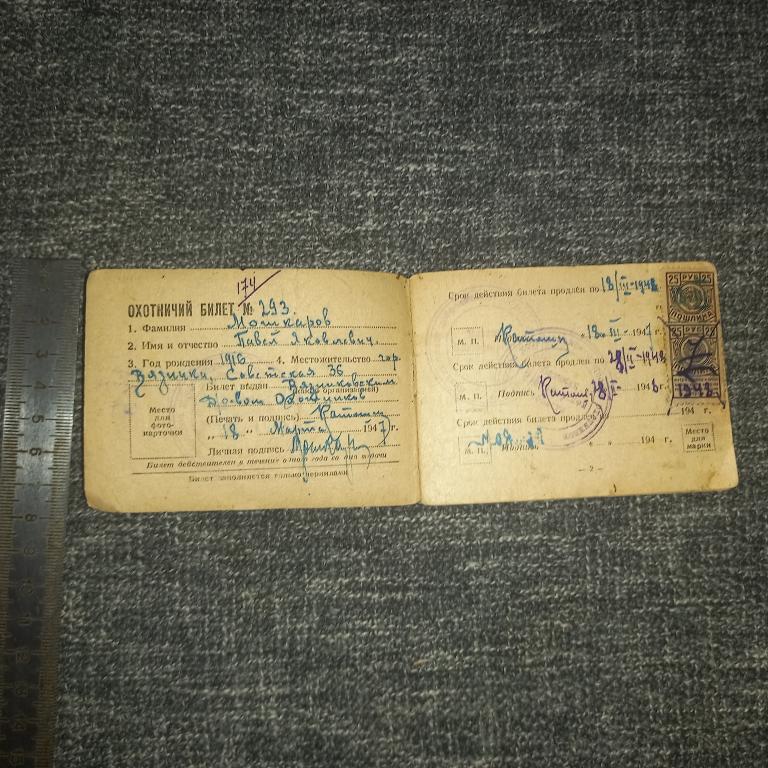 174
ОХОТНИЧИЙ БИЛЕТ № 293.
1. Фамилия Мошкаров
2. Имя и отчество Павел Яковлевич
3. Год рождения 1916 4. Местожительство гор.
Вязники, Советская 36
Билет выдан Вязниковским
Место для фото-карточки
(Печать и подпись)
„ 18 „ Марта 1947 г.
Личная подпись
Билет действителен в течение одного года со дня выдачи
Билет заполняется только чернилами
Срок действия билета продлён по 18/III-1948
г.
М. П. 18 III 194
Срок действия билета продлен по
М. П. Подпись 194 г.
Срок действия билета продлён
194 г.
М. П. „ „ 194 г.
Место для марки
— 2 —
25 РУБ 25
ПОШЛИНА
25 РУБ 25
1948